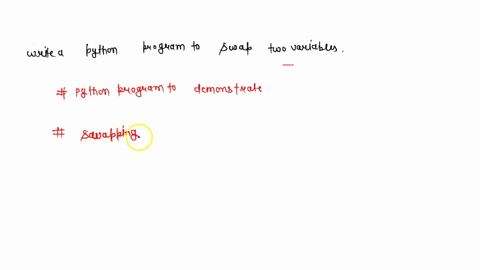 write a python program to swap two variables.
# python program to demonstrate
# swapping